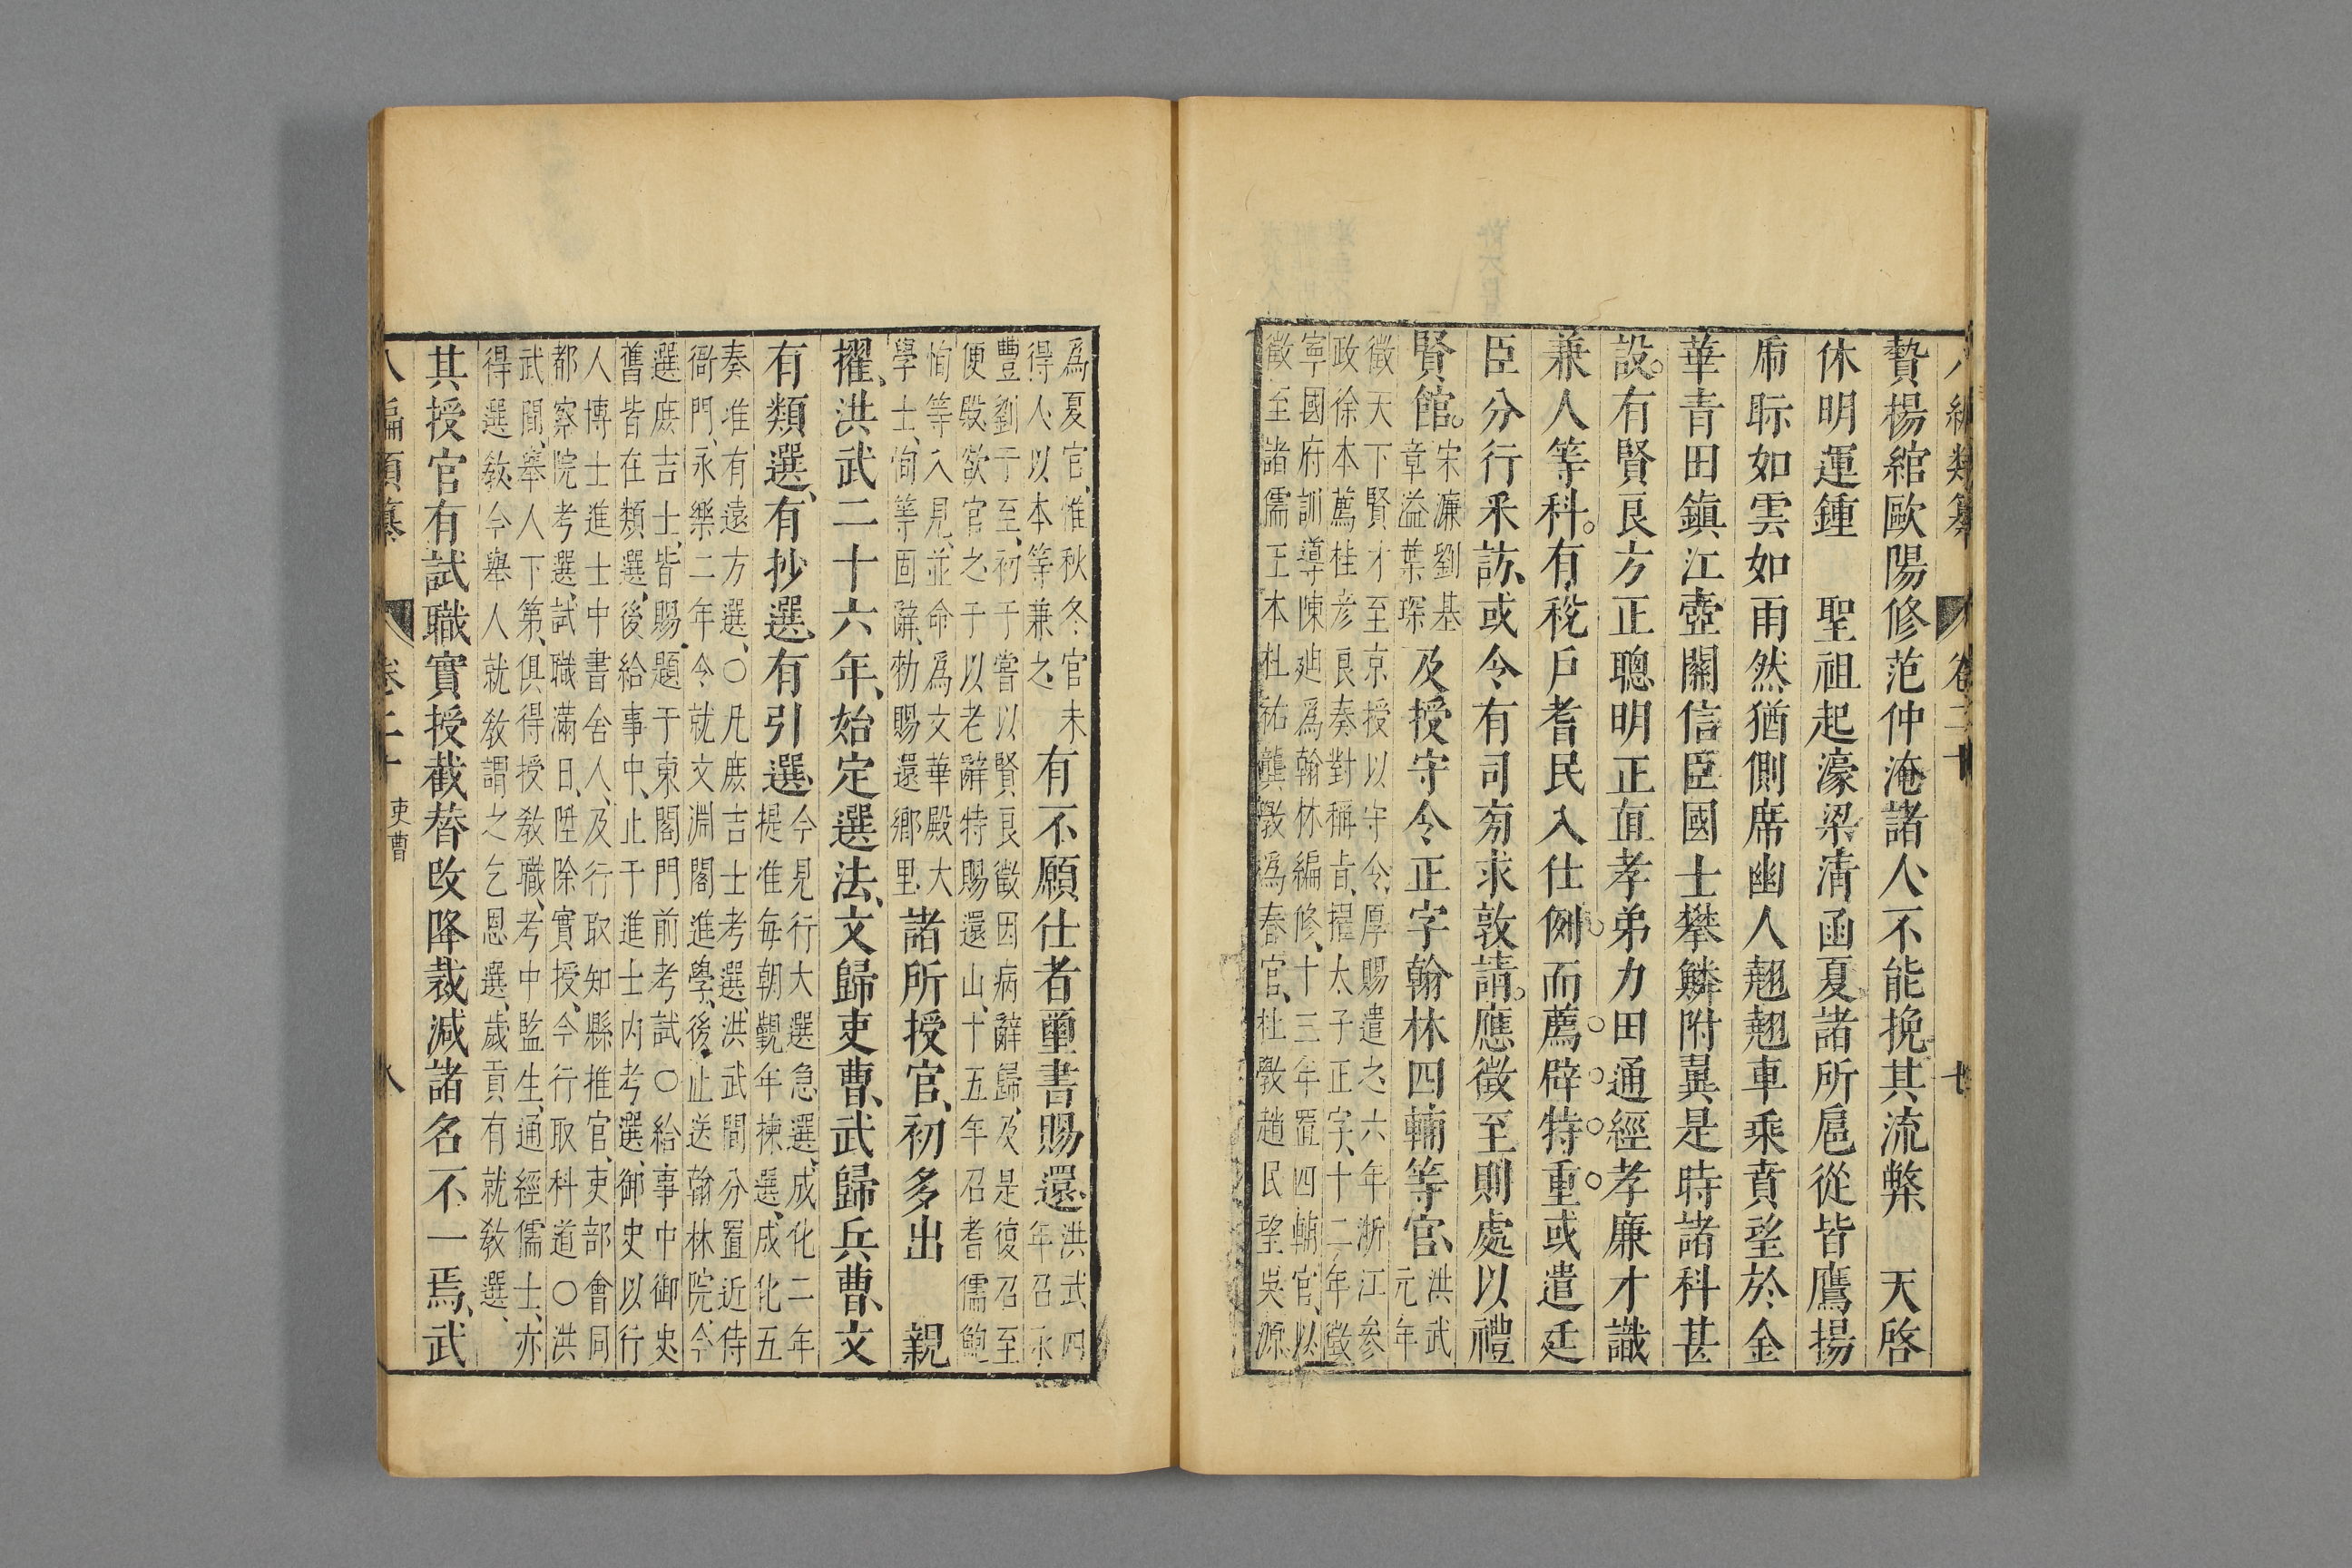 八編類纂 卷二十 七
贄楊綰歐陽修范仲淹諸人不能挽其流弊 天啓
休明運鍾 聖祖起濠梁淸函夏諸所扈從皆鷹揚
虎眎如雲如雨然猶側席幽人翹翹車乘賁望於金
華青田鎮江壺關信臣國士攀鱗附翼是時諸科甚
設。有賢良方正聰明正直孝弟力田通經孝廉才識
兼人等科。有稅戶耆民入仕例而薦辟特重或遣廷
臣分行釆訪、或令有司旁求敦請。應徵至則處以禮
賢館。
宋濂劉基
章溢葉琛
及授守令正字翰林四輔等官、
洪武
元年
徵天下賢才至京授以守令厚賜遣之六年浙江參
政徐本薦桂彦良奏對稱旨、擢太子正字、十二年徵
寧國府訓導陳廸爲翰林編修、十三年置四輔官、以
徵至諸儒王本杜祐龔斆爲春官、杜斆趙民望吳源
爲夏官、惟秋冬官未
得人以本等兼之
有不願仕者璽書賜還
洪武四
年召永
豐劉于至、初于嘗以賢良徵因病辭歸、及是復召至
便殿欲官之于以老辭特賜還山、十五年召耆儒鮑
恂等入見、並命爲文華殿大
學士、恂等固辭、勑賜還鄉里
諸所授官、初多出 親
擢、洪武二十六年、始定選法、文歸吏曹、武歸兵曹、文
有類選、有抄選、有引選
今見行大選急選、成化二年
提准每朝覲年揀選、成化五
奏准有遠方選、○凡庶吉士考選、洪武間分置近侍
衙門、永樂二年令就文淵閣進學、後止送翰林院、今
選庶吉士、皆賜題于東閣門前考試○給事中御史
舊皆在類選、後給事中、止于進士内考選、御史以行
人博士進士中書舍人、及行取知縣推官、吏部會同
都察院考選、試職滿日、陞除實授、今行取科道○洪
武間、舉人下第、俱得授教職、考中監生、通經儒士、亦
得選敎、今舉人就敎謂之乞恩選、歲貢有就敎選、
其授官有試職實授截替改降裁減諸名不一焉、武
八編類纂 卷二十 吏曹 八